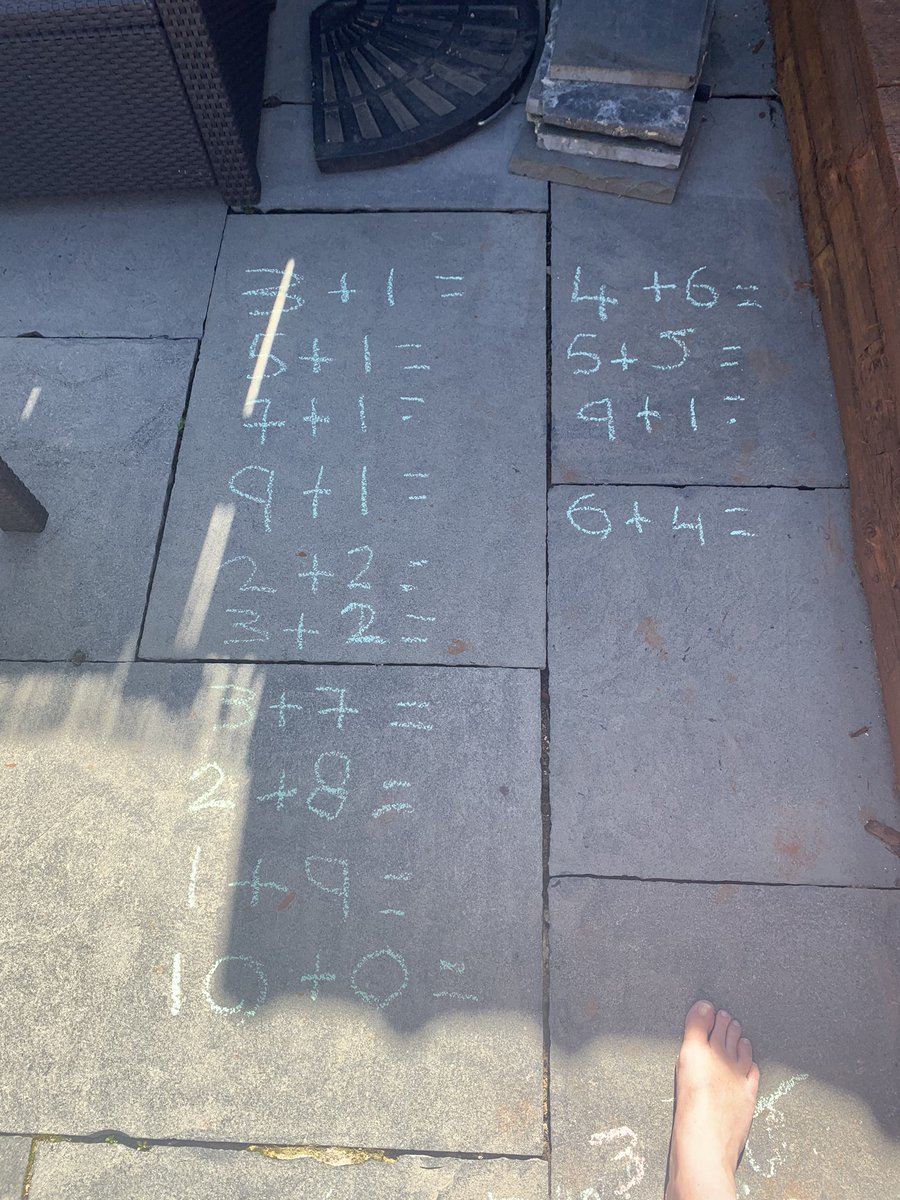 3 + 1 =
5 + 1 =
7 + 1 =
9 + 1 =
2 + 2 =
3 + 2 =
3 + 7 =
2 + 8 =
1 + 9 =
10 + 0 =
4 + 6 =
5 + 5 =
9 + 1 =
6 + 4 =
3